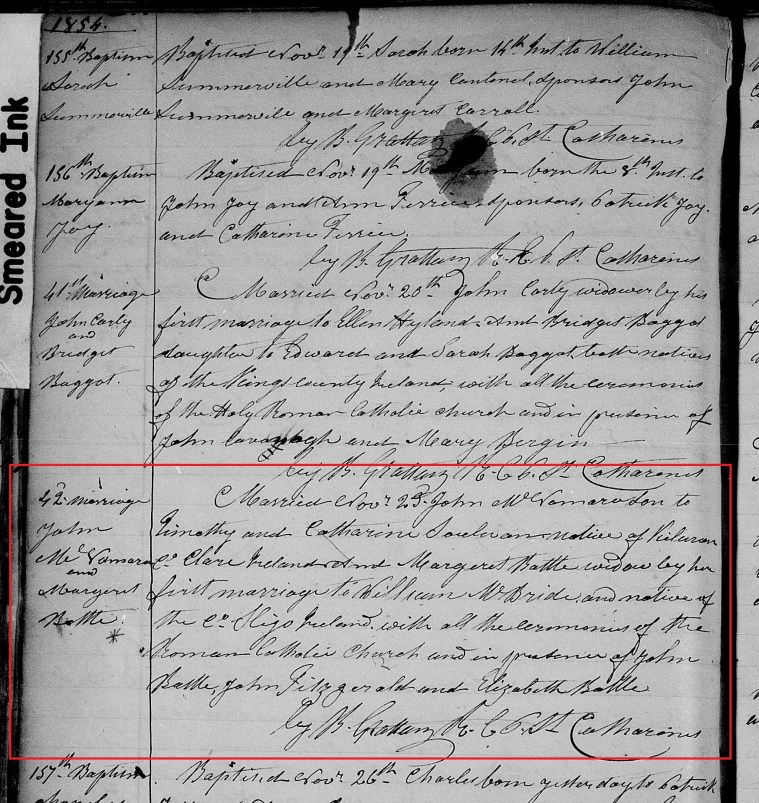 Smeared Ink
1854.
155th Baptism
Sarah
Summerville
Baptised Novr 19th Sarah born 14th Inst to William
Summerville and Mary Sponsors John
Summerville and Margaret Carroll.
by B. Grattan R.C.P. St Catharines
156th Baptism
Maryann
Joy.
Baptised Novr 19th born the 8th Inst. to
John Joy and Ann Perrier, Sponsors, Patrick Joy.
and Catharine Perrier.
by B. Grattan R.C.P. St. Catharines
41st Marriage
John Carty
and
Bridget
Baggot.
Married Novr 20th John Carty widower by his
first marriage to Ellen Hyland. And Bridget Baggot
daughter to Edward and Sarah Baggot, both natives
of the Kings County Ireland, with all the ceremonies
of the Holy Roman Catholic church and in presence of
John Cavanagh and Mary Bergin
by B. Grattan R.C.P. St Catharines
42d Marriage
John
McNamara
and
Margaret
Battle
*
Married Novr 23d John McNamara Son to
Timothy and Catharine native of
Co Clare Ireland. And Margaret Battle widow by her
first marriage to William McBride, and native of
the Co Sligo Ireland. with all the ceremonies of the
Roman Catholic Church and in presence of John
Battle, John Fitzgerald and Elizabeth Battle
by B. Grattan R.C.P. St Catharines
157th Baptism
Baptised Novr 26th Charles born yesterday to Patrick